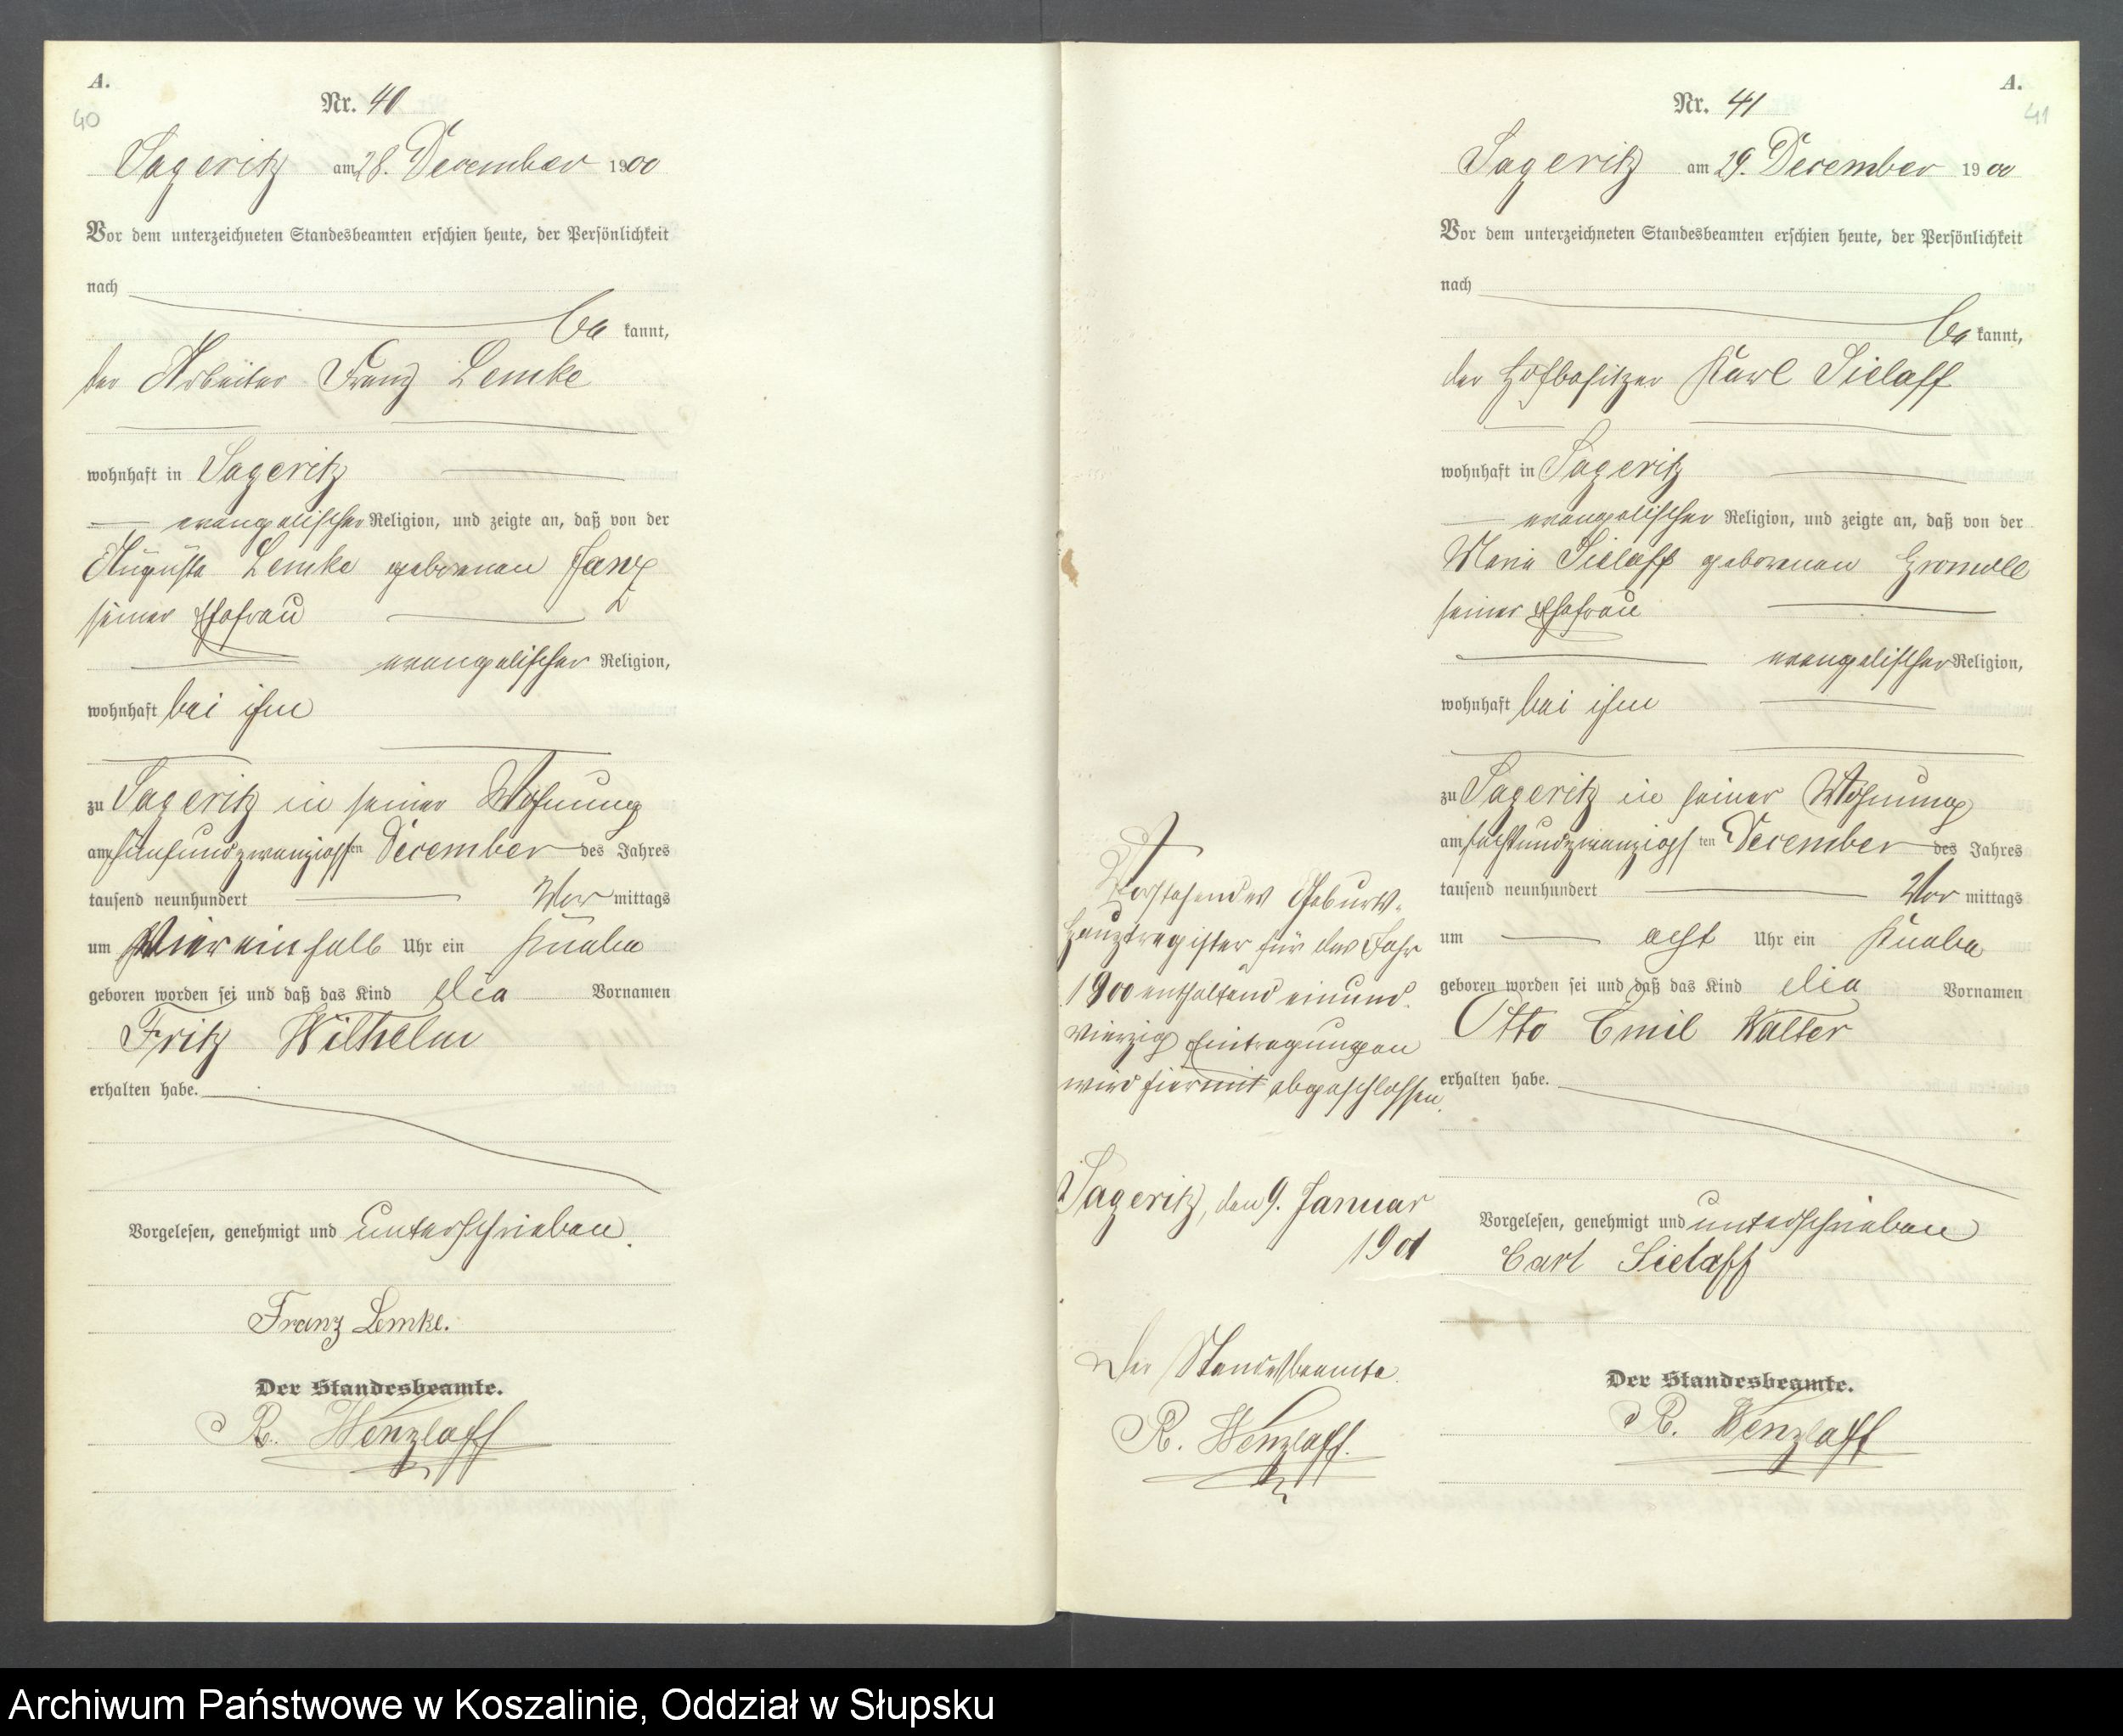 A.
40
Nr. 40
Sageritz am 28. December 1900
Vor dem unterzeichneten Standesbeamten erschien heute, der Persönlichkeit
nach
be kannt,
der Arbeiter Franz Lemke
wohnhaft in Sageritz
evangelischer Religion, und zeigte an, daß von der
Auguste Lemke geborenen Janz
seiner Ehefrau
evangelischer Religion,
wohnhaft bei ihm
zu Sageritz in seiner Wohnung
am fünfundzwanzigsten December des Jahres
tausend neunhundert Vor mittags
um viereinhalb Uhr ein Knabe
geboren worden sei und daß das Kind die Vornamen
Fritz Wilhelm
erhalten habe.
Vorgelesen, genehmigt und unterschrieben.
Franz Lemke.
Der Standesbeamte.
R. Wenzlaff
Vorstehendes Geburts-
Hauptregister für das Jahr
1900 enthaltend einund-
vierzig Eintragungen
wird hiermit abgeschlossen.
Sageritz, den 9. Januar
1901
Der Standesbeamte.
R. Wenzlaff.
A.
41
Nr. 41
Sageritz am 29. December 1900
Vor dem unterzeichneten Standesbeamten erschien heute, der Persönlichkeit
nach
be kannt,
der Hofbesitzer Karl Sielaff
wohnhaft in Sageritz
evangelischer Religion, und zeigte an, daß von der
Marie Sielaff geborenen Gromoll
seiner Ehefrau
evangelischer Religion,
wohnhaft bei ihm
zu Sageritz in seiner Wohnung
am sechsundzwanzigsten December des Jahres
tausend neunhundert Vor mittags
um acht Uhr ein Knabe
geboren worden sei und daß das Kind die Vornamen
Otto Emil Walter
erhalten habe.
Vorgelesen, genehmigt und unterschrieben
Carl Sielaff
Der Standesbeamte.
R. Wenzlaff
Archiwum Państwowe w Koszalinie, Oddział w Słupsku